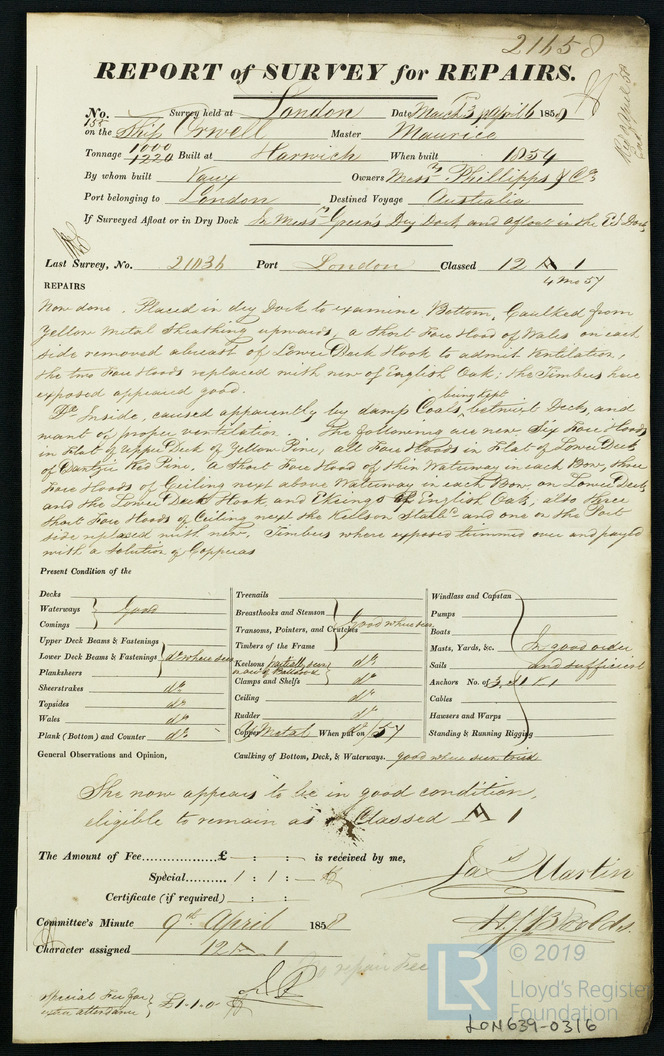 21658
REPORT of SURVEY for REPAIRS.
No. 155 Survey held at London Date March 3 April 6 1858
on the Ship Orwell Master Maurice
Tonnage 1000 1220 Built at Harwich When built 1854
By whom built Vaux Owners Messrs Phillipps & Co
Port belonging to London Destined Voyage Australia
If Surveyed Afloat or in Dry Dock In Messrs Green's Dry Dock and afloat in the E.I. Dock
Last Survey, No. 21036 Port London Classed 12 A 1
4 Mo 57
REPAIRS
Now done. Placed in dry Dock to examine Bottom, Caulked from
Yellow Metal Sheathing upwards, a Short Fore Hood of Wales on each
side removed abreast of Lower Deck Hook to admit Ventilation,
the two Fore Hoods replaced with new of English Oak; the Timbers here
exposed appeared good.
Do Inside, caused apparently by damp Coals, being kept betwixt Decks, and
want of proper ventilation. The following are new Six Fore Hoods
in Flat of Upper Deck of Yellow Pine, all Fore Hoods in Flat of Lower Deck
of Dantzic Red Pine, a Short Fore Hood of thin Waterway in each Bow, three
Fore Hoods of Ceiling next above Waterway in each Bow, on Lower Deck
and the Lower Deck Hook, and Ekeings of English Oak, also three
Short Fore Hoods of Ceiling next the Keelson Starbd and one on the Port
side replaced with new, Timbers where exposed trimmed over and payed
with a Solution of Copperas
Present Condition of the
Decks
Waterways Good
Comings
Upper Deck Beams & Fastenings
Lower Deck Beams & Fastenings do where seen
Planksheers
Sheerstrakes do
Topsides do
Wales do
Plank (Bottom) and Counter do
Treenails
Breasthooks and Stemson
Transoms, Pointers, and Crutches Good where seen
Timbers of the Frame
Keelsons partially seen do
Clamps and Shelfs do
Ceiling do
Rudder do
Copper Y Metal When put on /57
Windlass and Capstan
Pumps
Boats
Masts, Yards, &c. In good order
Sails and sufficient
Anchors No. of 3,
Cables
Hawsers and Warps
Standing & Running Rigging
General Observations and Opinion,
Caulking of Bottom, Deck, & Waterways. good where seen tried
She now appears to be in good condition,
eligible to remain as Classed A 1
The Amount of Fee £ : : is received by me,
Special 1 : 1 : –
Certificate (if required) : :
Jas Martin
Committee's Minute 9th April 1858
Character assigned 12 A 1
No repair Fee
Special Fee for
extra attendance £1.1.0
LR
© 2019
Lloyd's Register
Foundation
LON639-0316